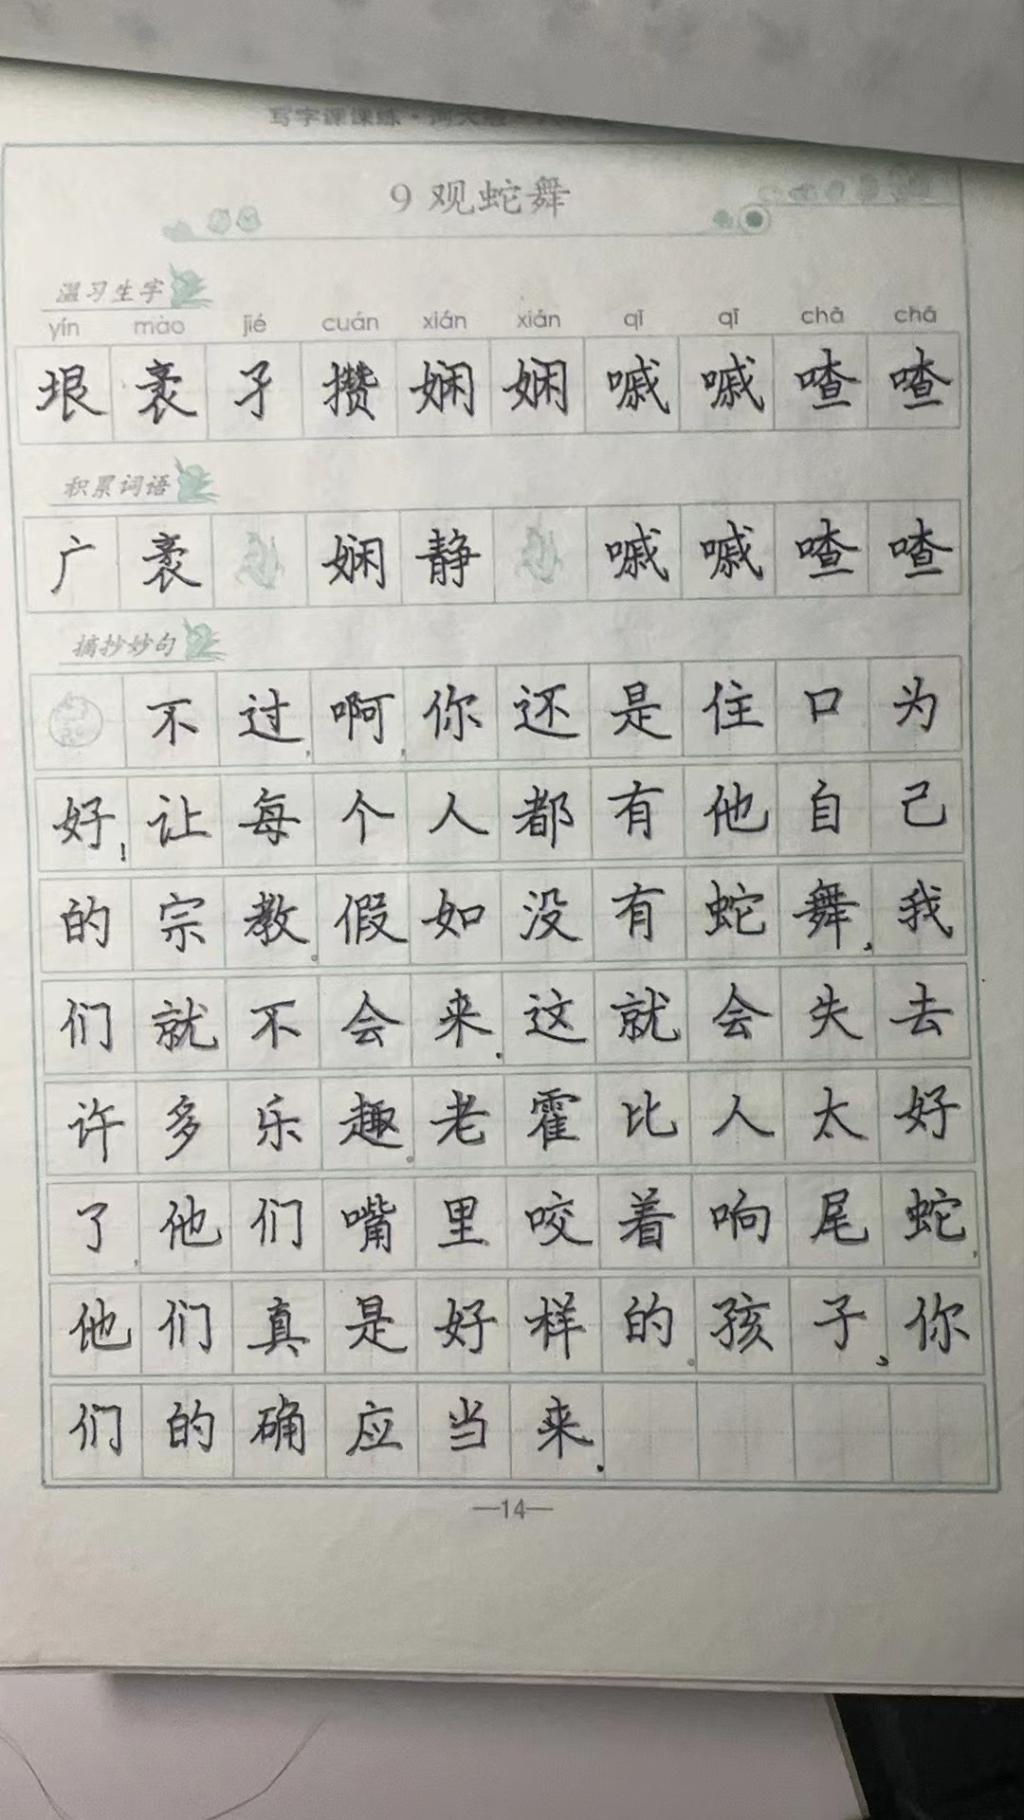 写字课课练·河大版
9 观蛇舞
温习生字
yín mào jié cuán xián xián qī qī chā chā
垠 袤 孑 攒 娴 娴 嘁 嘁 喳 喳
积累词语
广 袤 娴 静 嘁 嘁 喳 喳
摘抄妙句
不过,啊,你还是住口为
好!让每个人都有他自己
的宗教。假如没有蛇舞,我
们就不会来.这就会失去
许多乐趣。老霍比人太好
了,他们嘴里咬着响尾蛇,
他们真是好样的。孩子,你
们的确应当来.
—14—